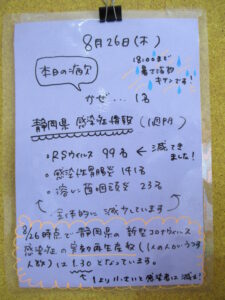 8月26日(木)
18:00まで
暑さ指数
キケンです!
本日の病欠
かぜ… 1名
静岡県 感染症情報 (1週間)
・RSウイルス 99名 ← 減ってきました!
・感染性胃腸炎 141名
・溶レン菌咽頭炎 23名
全体的に減少しています
8/26時点で静岡県の新型コロナウイルス
感染症の実効再生産数(1人の人がうつす
人数)は 1.30 となっています。
1より小さいと感染者は減少